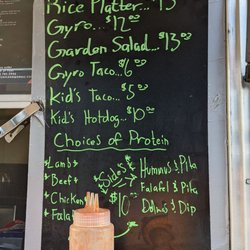 Rice Platter... 15
Gyro... $12.00
Garden Salad... $13.00
Gyro Taco... $6.00
Kid's Taco... $5.00
Kid's Hotdog... $10.00
Choices of Protein
*Lamb
*Beef
*Chicken
*Falaf
*Sides*
Humnus & Pita
Falafel & Pita
Dolmo & Dip
$10.00